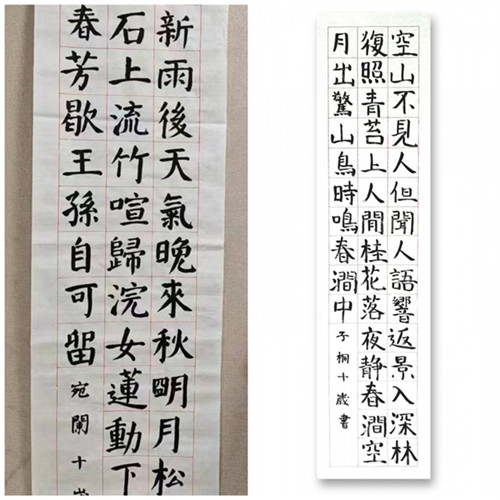 新雨後天氣晚來秋明月松
石上流竹喧歸浣女蓮動下
春芳歇王孫自可留
宛闌十歲
空山不見人但聞人語響返景入深林
復照青苔上人間桂花落夜静春澗空
月出驚山鳥時鳴春澗中
子桐十歲書